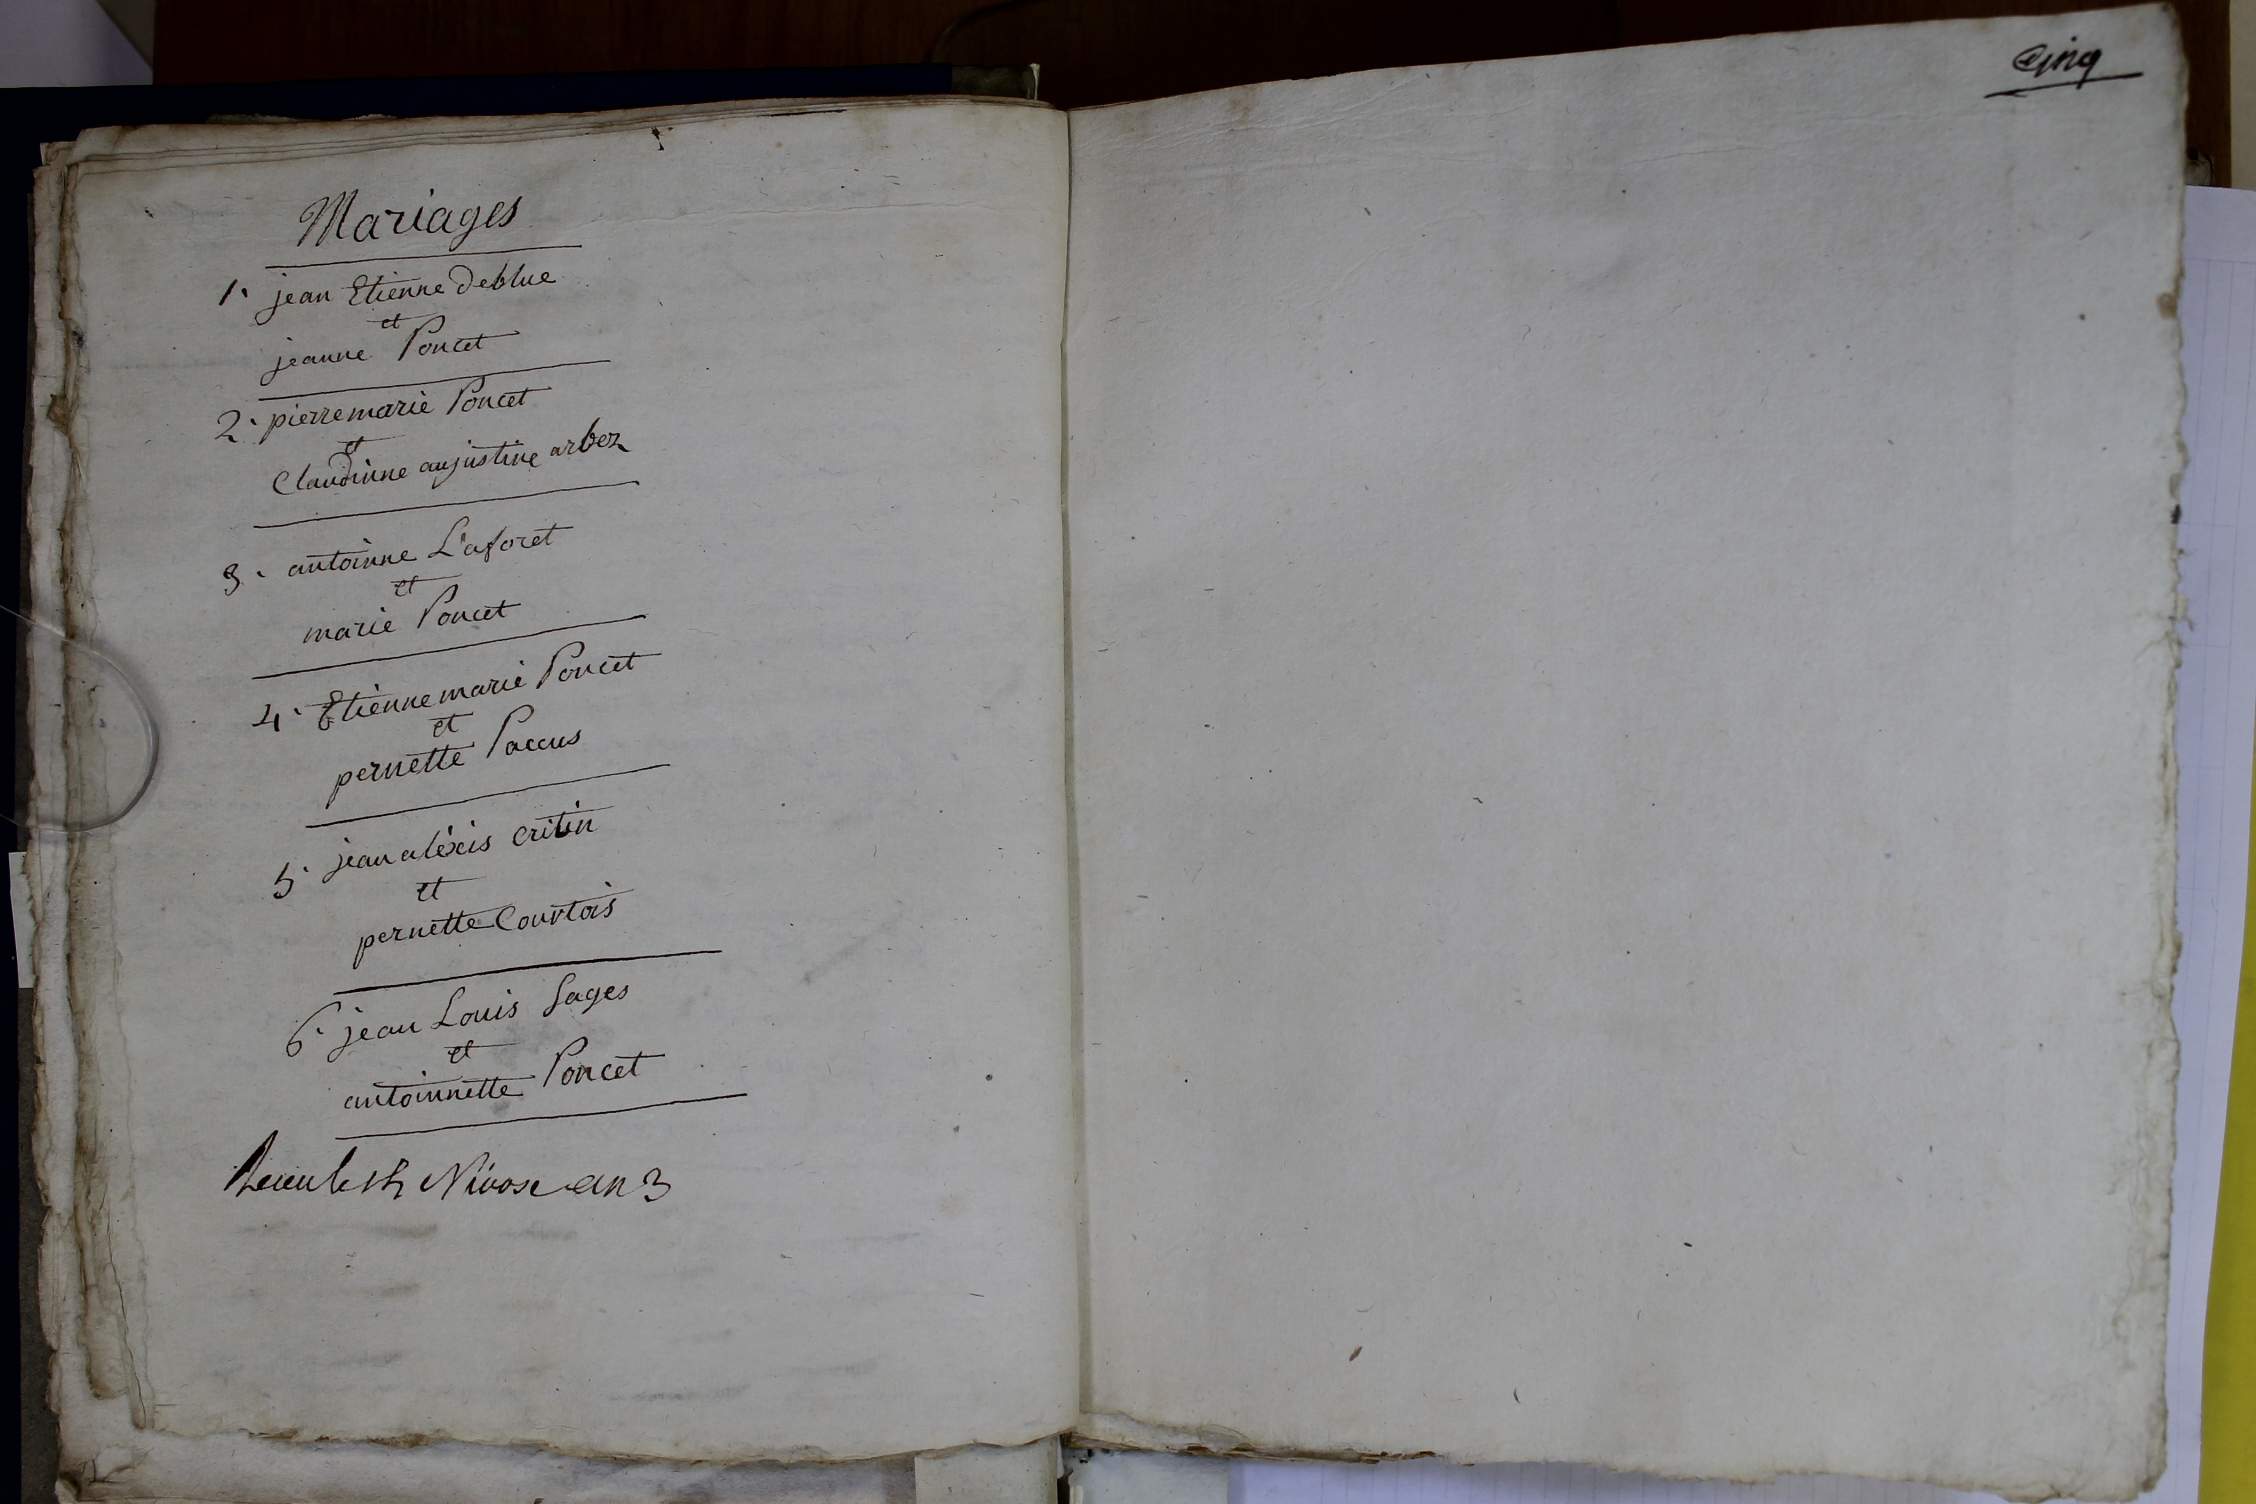 Mariages
1. jean Etienne Deblue
et
jeanne Poncet
2. pierre marie Poncet
et
Claudinne augustine arbez
3. antoinne L'aforet
et
marie Poncet
4. Etienne marie Poncet
et
pernette Paccus
5. jean aléxis critin
et
pernette Courtois
6. jean Louis Sages
et
antoinnette Poncet
le Nivose an 3
Cinq